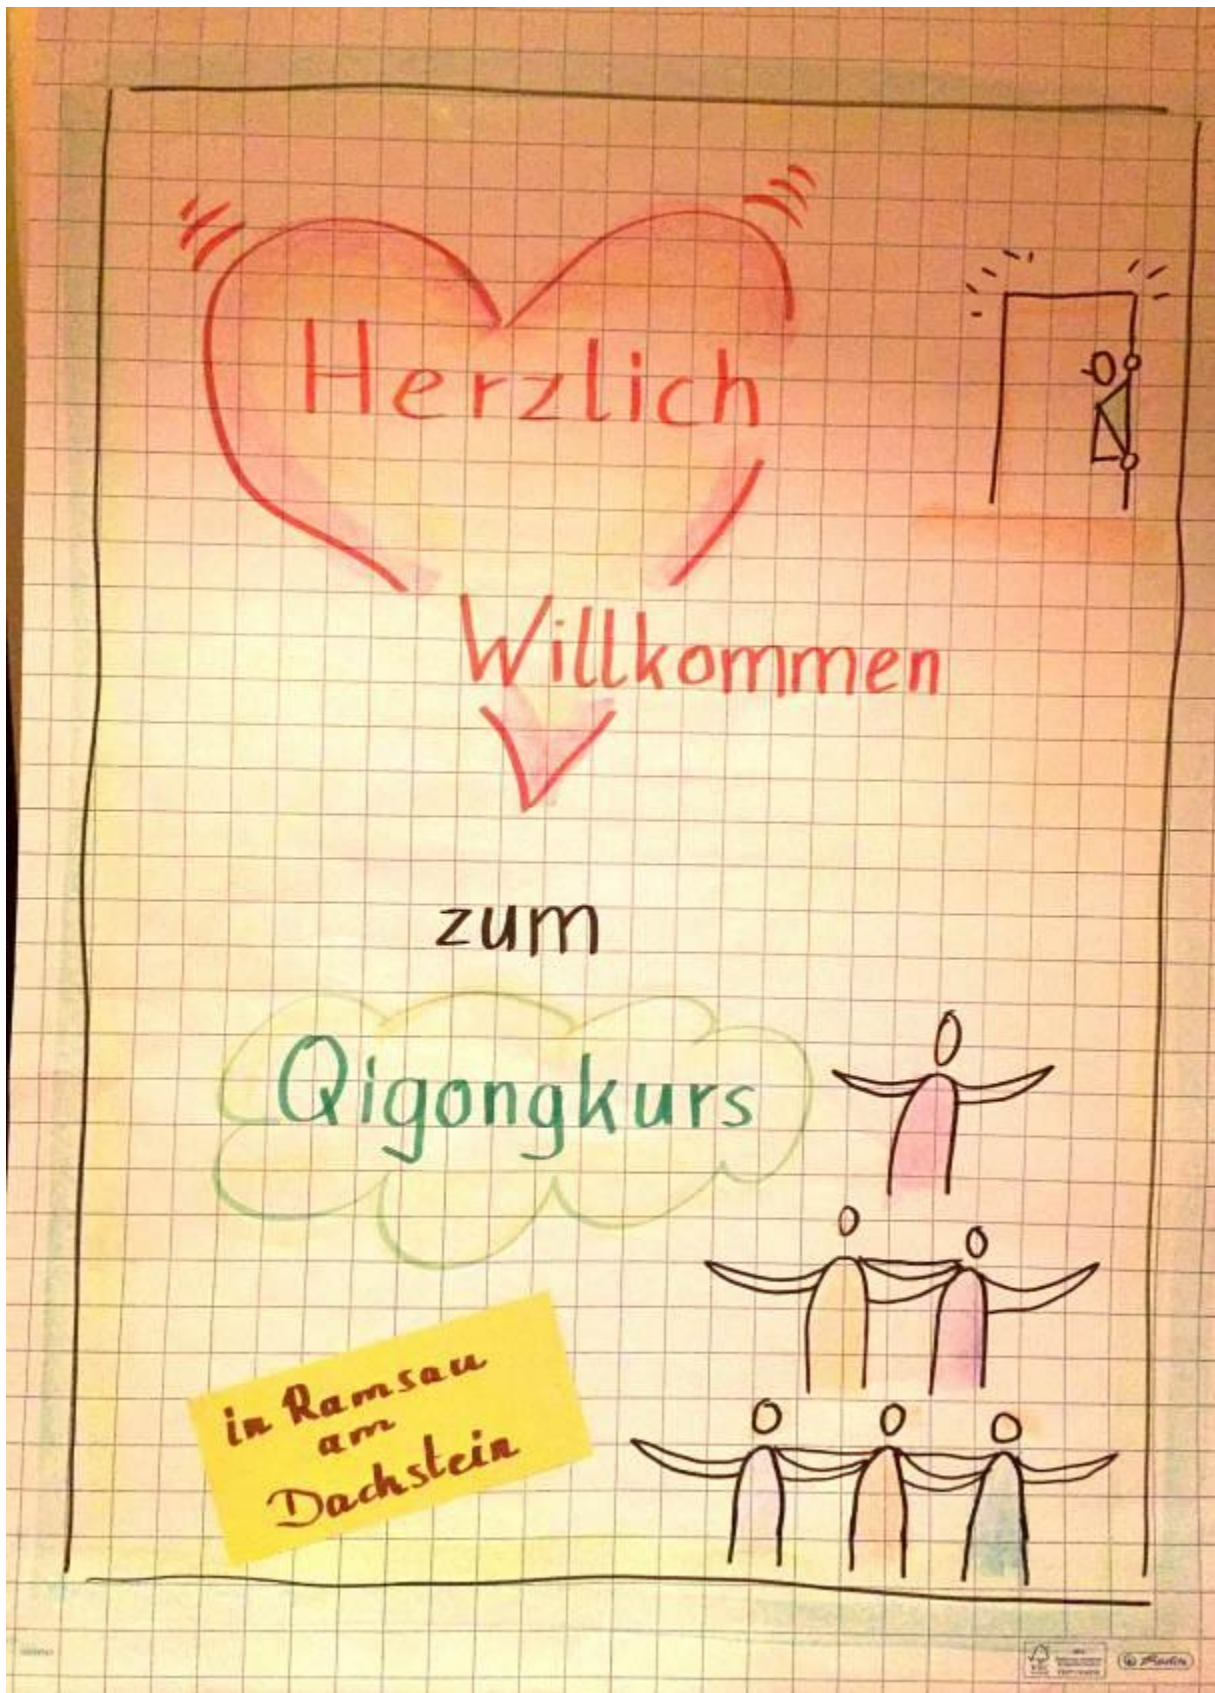 Herzlich
Willkommen
zum
Qigongkurs
in Ramsau
am
Dachstein